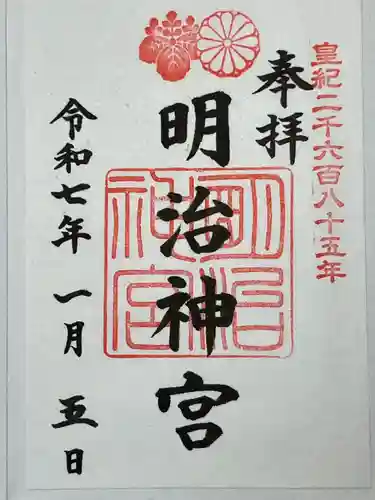 皇紀二千六百八十五年
奉拝
明治神宮
明治神宮
令和七年 一月 五日